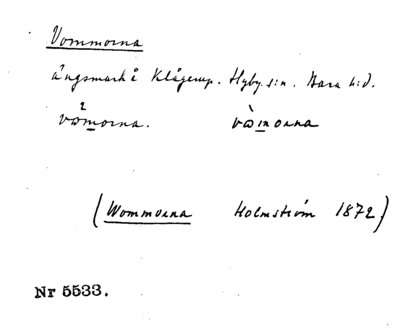 Vommorna
ängsmark å Klågerup. Hyby s:n. Bara h:d.
vωmorna. vὼmorna
(Wommorna Holmström 1872)
Nr 5533.